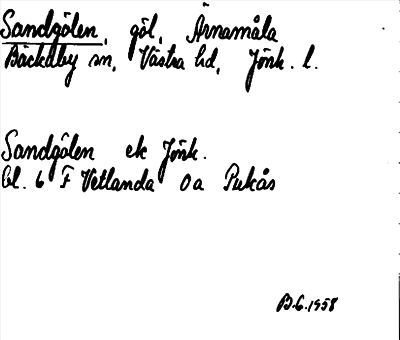 Sandgölen, göl, Årnamåla
Bäckaby sn, Västra hd, Jönk. l.
Sandgölen ek Jönk.
bl. 6 F Vetlanda Oa Pukås
B.G. 1958